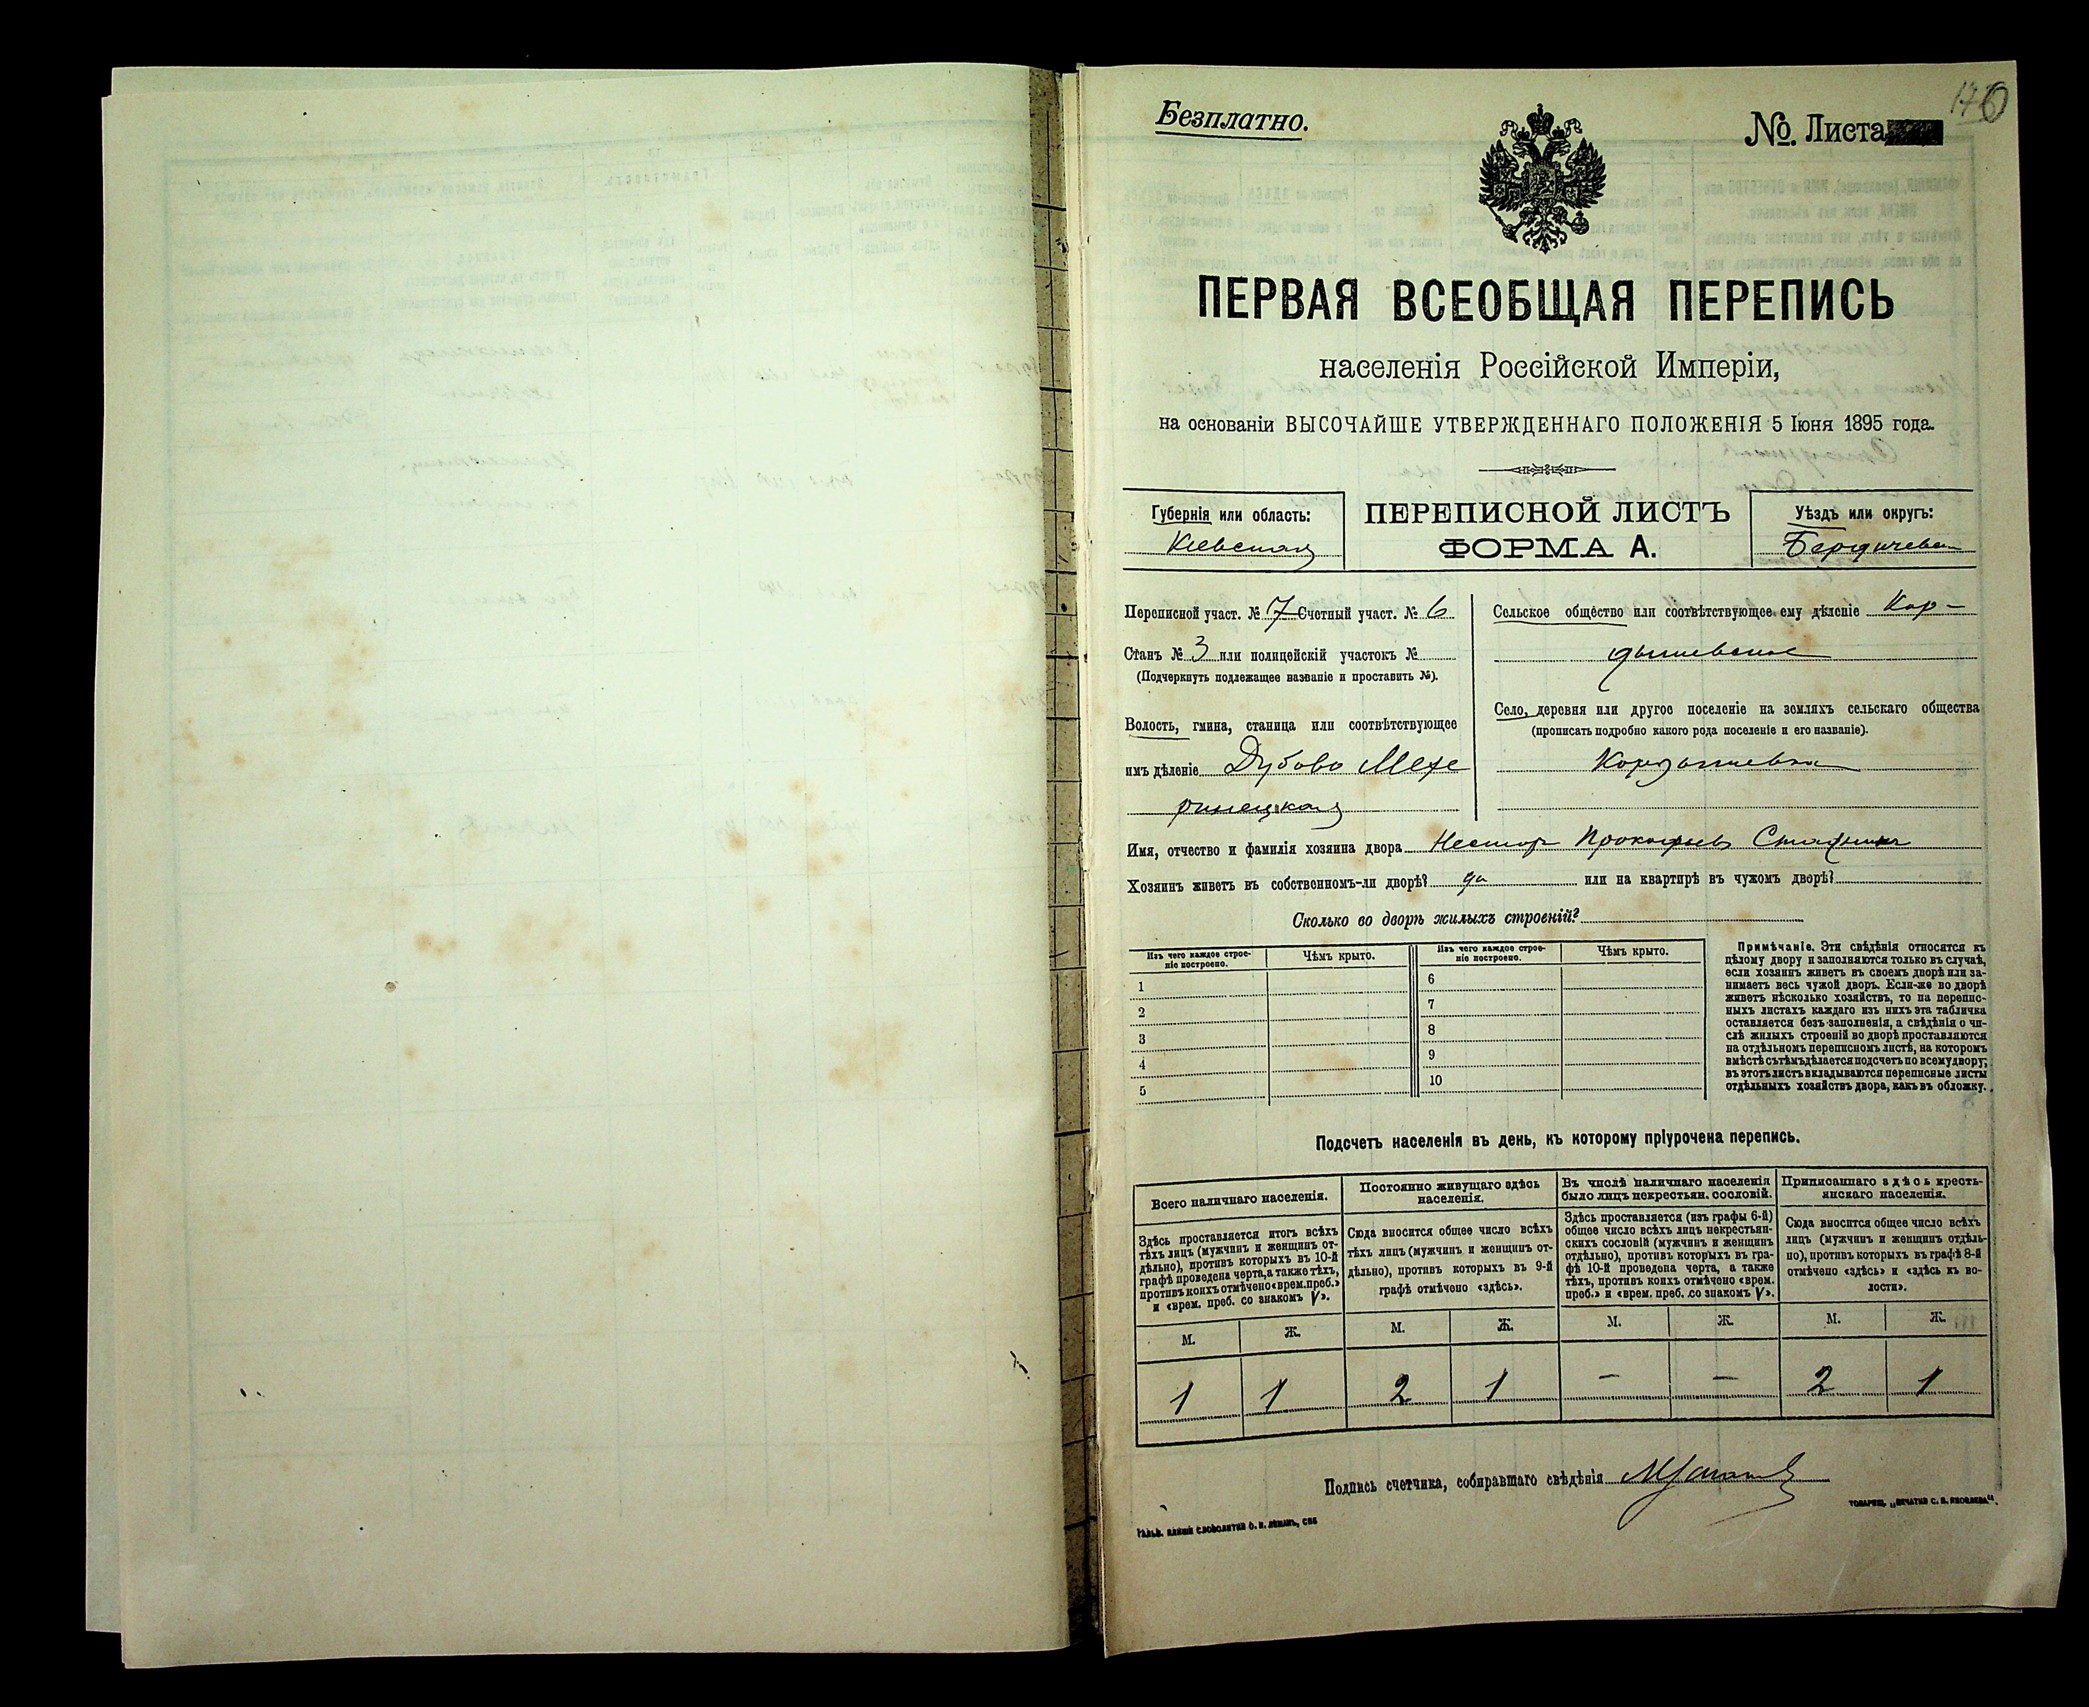 Безплатно.
№. Листа
ПЕРВАЯ ВСЕОБЩАЯ ПЕРЕПИСЬ
населенія Россійской Имперіи,
на основаніи ВЫСОЧАЙШЕ УТВЕРЖДЕННАГО ПОЛОЖЕНІЯ 5 Іюня 1895 года.
Губернія или область:
Кіевская
ПЕРЕПИСНОЙ ЛИСТЪ
ФОРМА А.
Уѣздъ или округъ:
Бердичевск
Переписной участ. № 7 Счетный участ. № 6
Станъ № 3 или полицейскій участокъ №
(Подчеркнуть подлежащее названіе и проставить №).
Волость, гмина, станица или соотвѣтствующее
имъ дѣленіе Дубово Меже
ринецкая
Сельское общество или соотвѣтствующее ему дѣленіе Кор-
дышевское
Село, деревня или другое поселеніе на земляхъ сельскаго общества
(прописать подробно какого рода поселеніе и его названіе).
Кордышевка
Имя, отчество и фамилія хозяина двора Несторъ Прокофьевъ
Хозяинъ живетъ въ собственномъ-ли дворѣ? да или на квартирѣ въ чужомъ дворѣ?
Сколько во дворѣ жилыхъ строеній?
Изъ чего каждое строе-
ніе построено.
Чѣмъ крыто.
Изъ чего каждое строе-
ніе построено.
Чѣмъ крыто.
1
2
3
4
5
6
7
8
9
10
Примѣчаніе. Эти свѣдѣнія относятся къ
цѣлому двору и заполняются только въ случаѣ,
если хозяинъ живетъ въ своемъ дворѣ или за-
нимаетъ весь чужой дворъ. Если-же во дворѣ
живетъ нѣсколько хозяйствъ, то на перепис-
ныхъ листахъ каждаго изъ нихъ эта табличка
оставляется безъ заполненія, а свѣдѣнія о чи-
слѣ жилыхъ строеній во дворѣ проставляются
на отдѣльномъ переписномъ листѣ, на которомъ
вмѣстѣ съ тѣмъ дѣлается подсчетъ по всему двору;
въ этотъ листъ вкладываются переписные листы
отдѣльныхъ хозяйствъ двора, какъ въ обложку.
Подсчетъ населенія въ день, къ которому пріурочена перепись.
Всего наличнаго населенія.
Здѣсь проставляется итогъ всѣхъ
тѣхъ лицъ (мужчинъ и женщинъ от-
дѣльно), противъ которыхъ въ 10-й
графѣ проведена черта, а также тѣхъ,
противъ коихъ отмѣчено «врем. преб.»
и «врем. преб. со знакомъ V».
Постоянно живущаго здѣсь
населенія.
Сюда вносится общее число всѣхъ
тѣхъ лицъ (мужчинъ и женщинъ от-
дѣльно), противъ которыхъ въ 9-й
графѣ отмѣчено «здѣсь».
Въ числѣ наличнаго населенія
было лицъ некрестьян. сословій.
Здѣсь проставляется (изъ графы 6-й)
общее число всѣхъ лицъ некрестьян-
скихъ сословій (мужчинъ и женщинъ
отдѣльно), противъ которыхъ въ гра-
фѣ 10-й проведена черта, а также
тѣхъ, противъ коихъ отмѣчено «врем.
преб.» и «врем. преб. со знакомъ V».
Приписаннаго здѣсь кресть-
янскаго населенія.
Сюда вносится общее число всѣхъ
лицъ (мужчинъ и женщинъ отдѣль-
но), противъ которыхъ въ графѣ 8-й
отмѣчено «здѣсь» и «здѣсь къ во-
лости».
М. Ж. М. Ж. М. Ж. М. Ж.
1 1 2 1 – – 2 1
Подпись счетчика, собиравшаго свѣдѣнія
ТОВАРИЩ. „ПЕЧАТНЯ С. П. ЯКОВЛЕВА“.